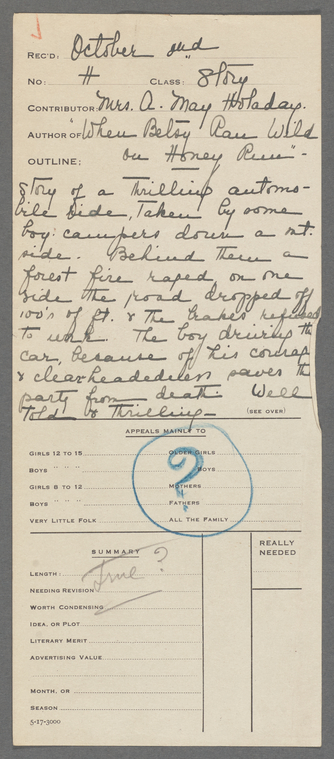 REC'D: October 2nd
No: # CLASS: Story
CONTRIBUTOR: Mrs. A. May Holaday.
AUTHOR OF "When Betsy Ran Wild
OUTLINE: on Honey Run"-
Story of a thrilling automo-
bile ride, taken by some
boy campers down a mt.
side. Behind them a
forest fire raged, on one
side the road dropped off
100's of ft. & the brakes refused
to work. The boy driving the
car, because of his courage
& clearheadedness saves the
party from death. Well
told & thrilling-
(SEE OVER)
APPEALS MAINLY TO
GIRLS 12 TO 15 OLDER GIRLS
BOYS " " " BOYS
GIRLS 8 TO 12 MOTHERS
BOYS " " " FATHERS
VERY LITTLE FOLK ALL THE FAMILY
?
SUMMARY
REALLY NEEDED
LENGTH:
True?
NEEDING REVISION
WORTH CONDENSING
IDEA, OR PLOT
LITERARY MERIT
ADVERTISING VALUE
MONTH, OR
SEASON
5-17-3000